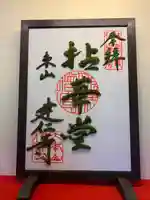 奉拝
拈華堂
東山
建仁寺